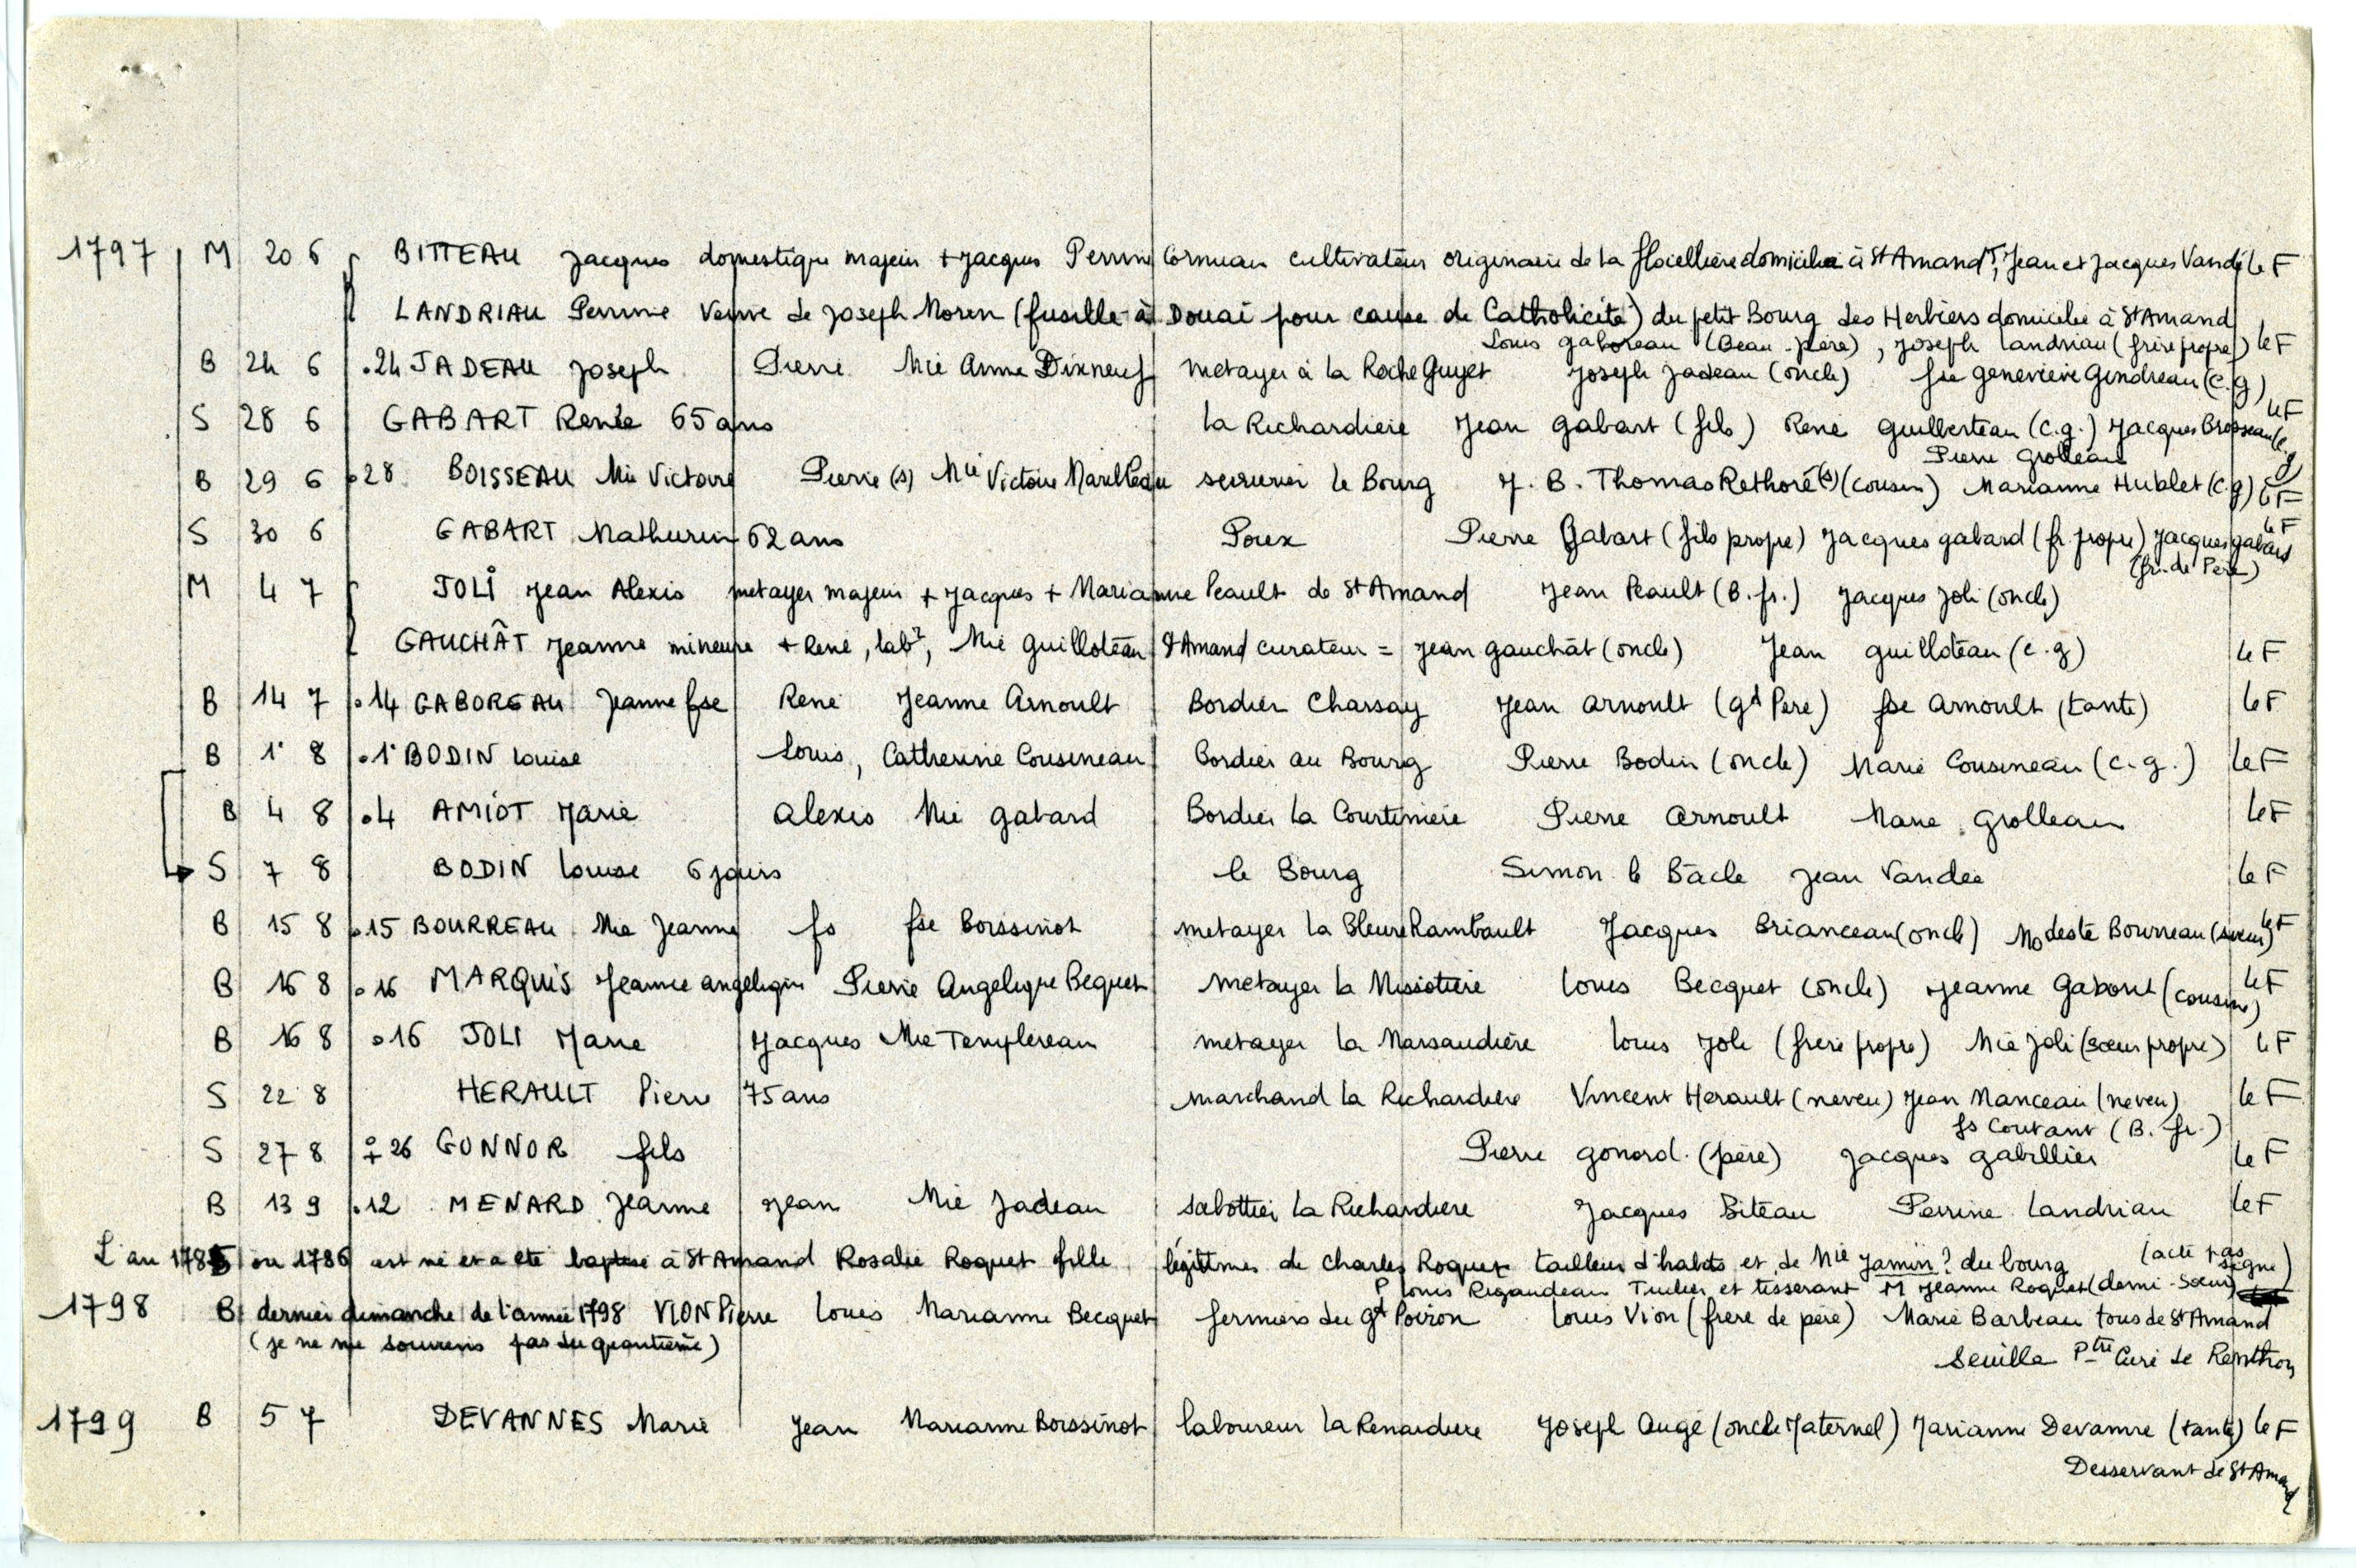 1797 M 20 6 BITTEAU Jacques domestique majeur + Jacques Perrine Cornuau cultivateur originaire de la flocellière domicilié à St Amand T, Jean et Jacques Vandé le F
LANDRIAU Perrine Veuve de Joseph Morin (fusillé à Douai pour cause de Catholicité) du petit Bourg des Herbiers domicilié à St Amand
Louis gaboreau (Beau-père), Joseph Landriau (frère propre) le F
B 24 6 .24 JADEAU Joseph Pierre Mie Anne Dixneuf metayer à la Roche Guyet Joseph Jadeau (oncle) fse geneviève Gendreau (c.g)
S 28 6 GABART Renée 65 ans la Richardière Jean gabart (fils) René guilberteau (c.g.) Jacques Brosseau (c.g) le F
Pierre Grolleau
B 29 6 .28 BOISSEAU Mie Victoire Pierre (s) Mie Victoire Marilleau serrurier le Bourg J. B. Thomas Rethoré (s) (cousin) Marianne Hublet (c.g) le F
S 30 6 GABART Mathurin 62 ans Poux Pierre Gabart (fils propre) Jacques gabard (fr. propre) Jacques gabard le F
(fr. de Père)
M 4 7 JOLI Jean Alexis metayer majeur + Jacques + Marianne Peault de St Amand Jean Peault (B. fr.) Jacques Joli (oncle)
GAUCHÂT Jeanne mineure + René, labr, Mie Guilloteau St Amand curateur = Jean gauchât (oncle) Jean guilloteau (c.g) le F
B 14 7 .14 GABOREAU Jeanne fse René Jeanne Arnoult Bordier Charsay Jean Arnoult (gd Père) fse Arnoult (tante) le F
B 1° 8 .1° BODIN Louise Louis, Catherine Cousineau Bordier au Bourg Pierre Bodin (oncle) Marie Cousineau (c.g.) le F
B 4 8 .4 AMIOT Marie Alexis Mie gabard Bordier la Courtinière Pierre Arnoult Marie Grolleau le F
S 7 8 BODIN Louise 6 jours le Bourg Simon le Bâcle Jean Vandée le F
B 15 8 .15 BOURREAU Mie Jeanne fs fse Boissinot metayer la Bleure Rambault Jacques Brianceau (oncle) Modeste Bourreau (sœur) le F
B 16 8 .16 MARQUIS Jeanne angélique Pierre Angélique Bequet metayer la Missotière Louis Becquet (oncle) Jeanne Gaborit (cousine) le F
B 16 8 .16 JOLI Marie Jacques Mie Templereau metayer la Marsaudière Louis Joli (frère propre) Mie Joli (sœur propre) le F
S 22 8 HERAULT Pierre 75 ans marchand la Richardière Vincent Herault (neveu) Jean Manceau (neveu) le F
fs Coutant (B. fr.)
S 27 8 26 GONNOR fils Pierre gonord (père) Jacques gabillier le F
B 13 9 .12 MENARD Jeanne Jean Mie Jadeau sabottier la Richardière Jacques Biteau Perrine Landriau le F
L'an 1785 ou 1786 est né et a été baptisé à St Amand Rosalie Roquet fille légitime de Charles Roquet tailleur d'habits et de Mie Jamin ? du bourg (acte pas signé)
P Louis Rigaudeau Tuilier et tisserant M Jeanne Roquet (demi-Sœur)
1798 B dernier dimanche de l'année 1798 VION Pierre Louis Marianne Becquet fermiers du gd Poiron Louis Vion (frère de père) Marie Barbeau tous de St Amand
(je ne me souviens pas du quantième) Seuille Ptre Curé de
1799 B 5 7 DEVANNES Marie Jean Marianne Boissinot laboureur la Renardière Joseph Augé (oncle Maternel) Marianne Devanne (tante) le F
Desservant de St Amand